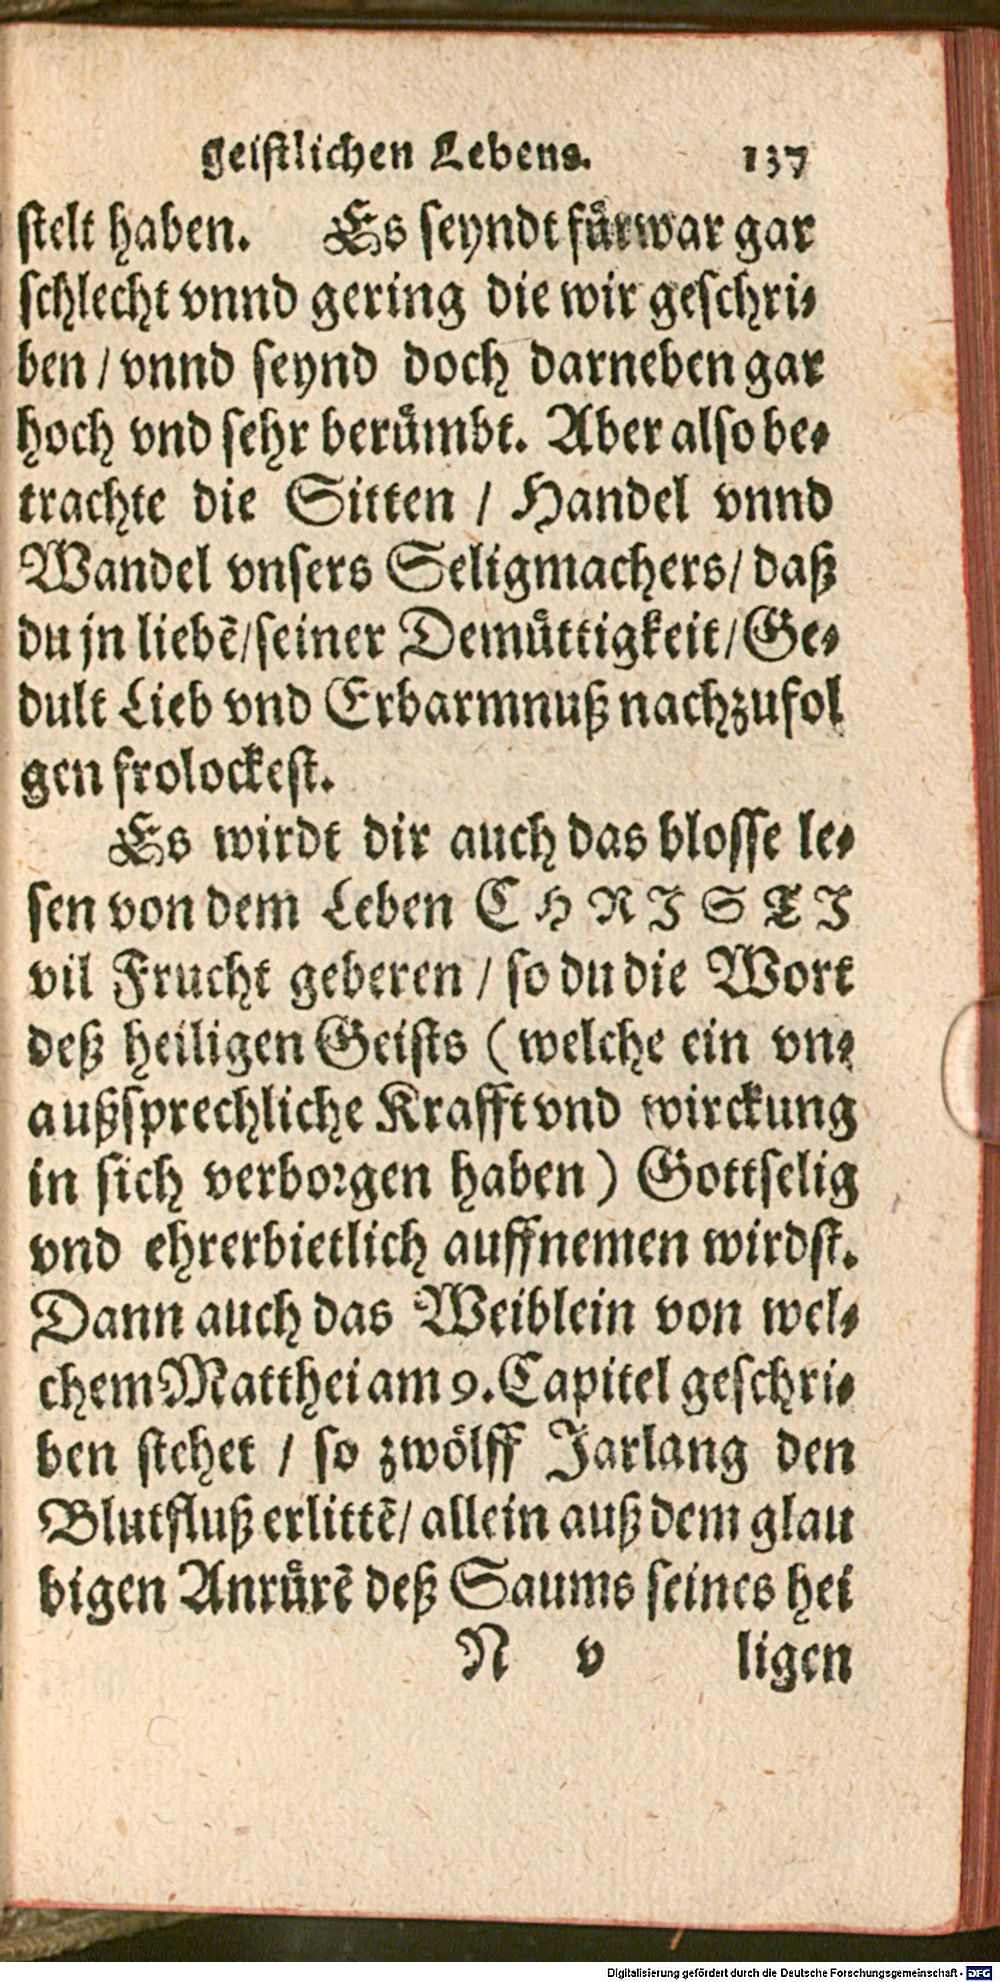 geistlichen Lebens. 137
stelt haben. Es seyndt fürwar gar
schlecht vnnd gering die wir geschri-
ben / vnnd seynd doch darneben gar
hoch vnd sehr berümbt. Aber also be-
trachte die Sitten / Handel vnnd
Wandel vnsers Seligmachers / daß
du jn liebẽ / seiner Demüttigkeit / Ge-
dult Lieb vnd Erbarmnuß nachzufol
gen frolockest.
Es wirdt dir auch das blosse le-
sen von dem Leben CHRISTI
vil Frucht geberen / so du die Wort
deß heiligen Geists (welche ein vn-
außsprechliche Krafft vnd wirckung
in sich verborgen haben) Gottselig
vnd ehrerbietlich auffnemen wirdst.
Dann auch das Weiblein von wel-
chem Matthei am 9. Capitel geschri-
ben stehet / so zwölff Jarlang den
Blutfluß erlittẽ / allein auß dem glau
bigen Anrürẽ deß Saums seines hei
N v ligen
Digitalisierung gefördert durch die Deutsche Forschungsgemeinschaft - DFG